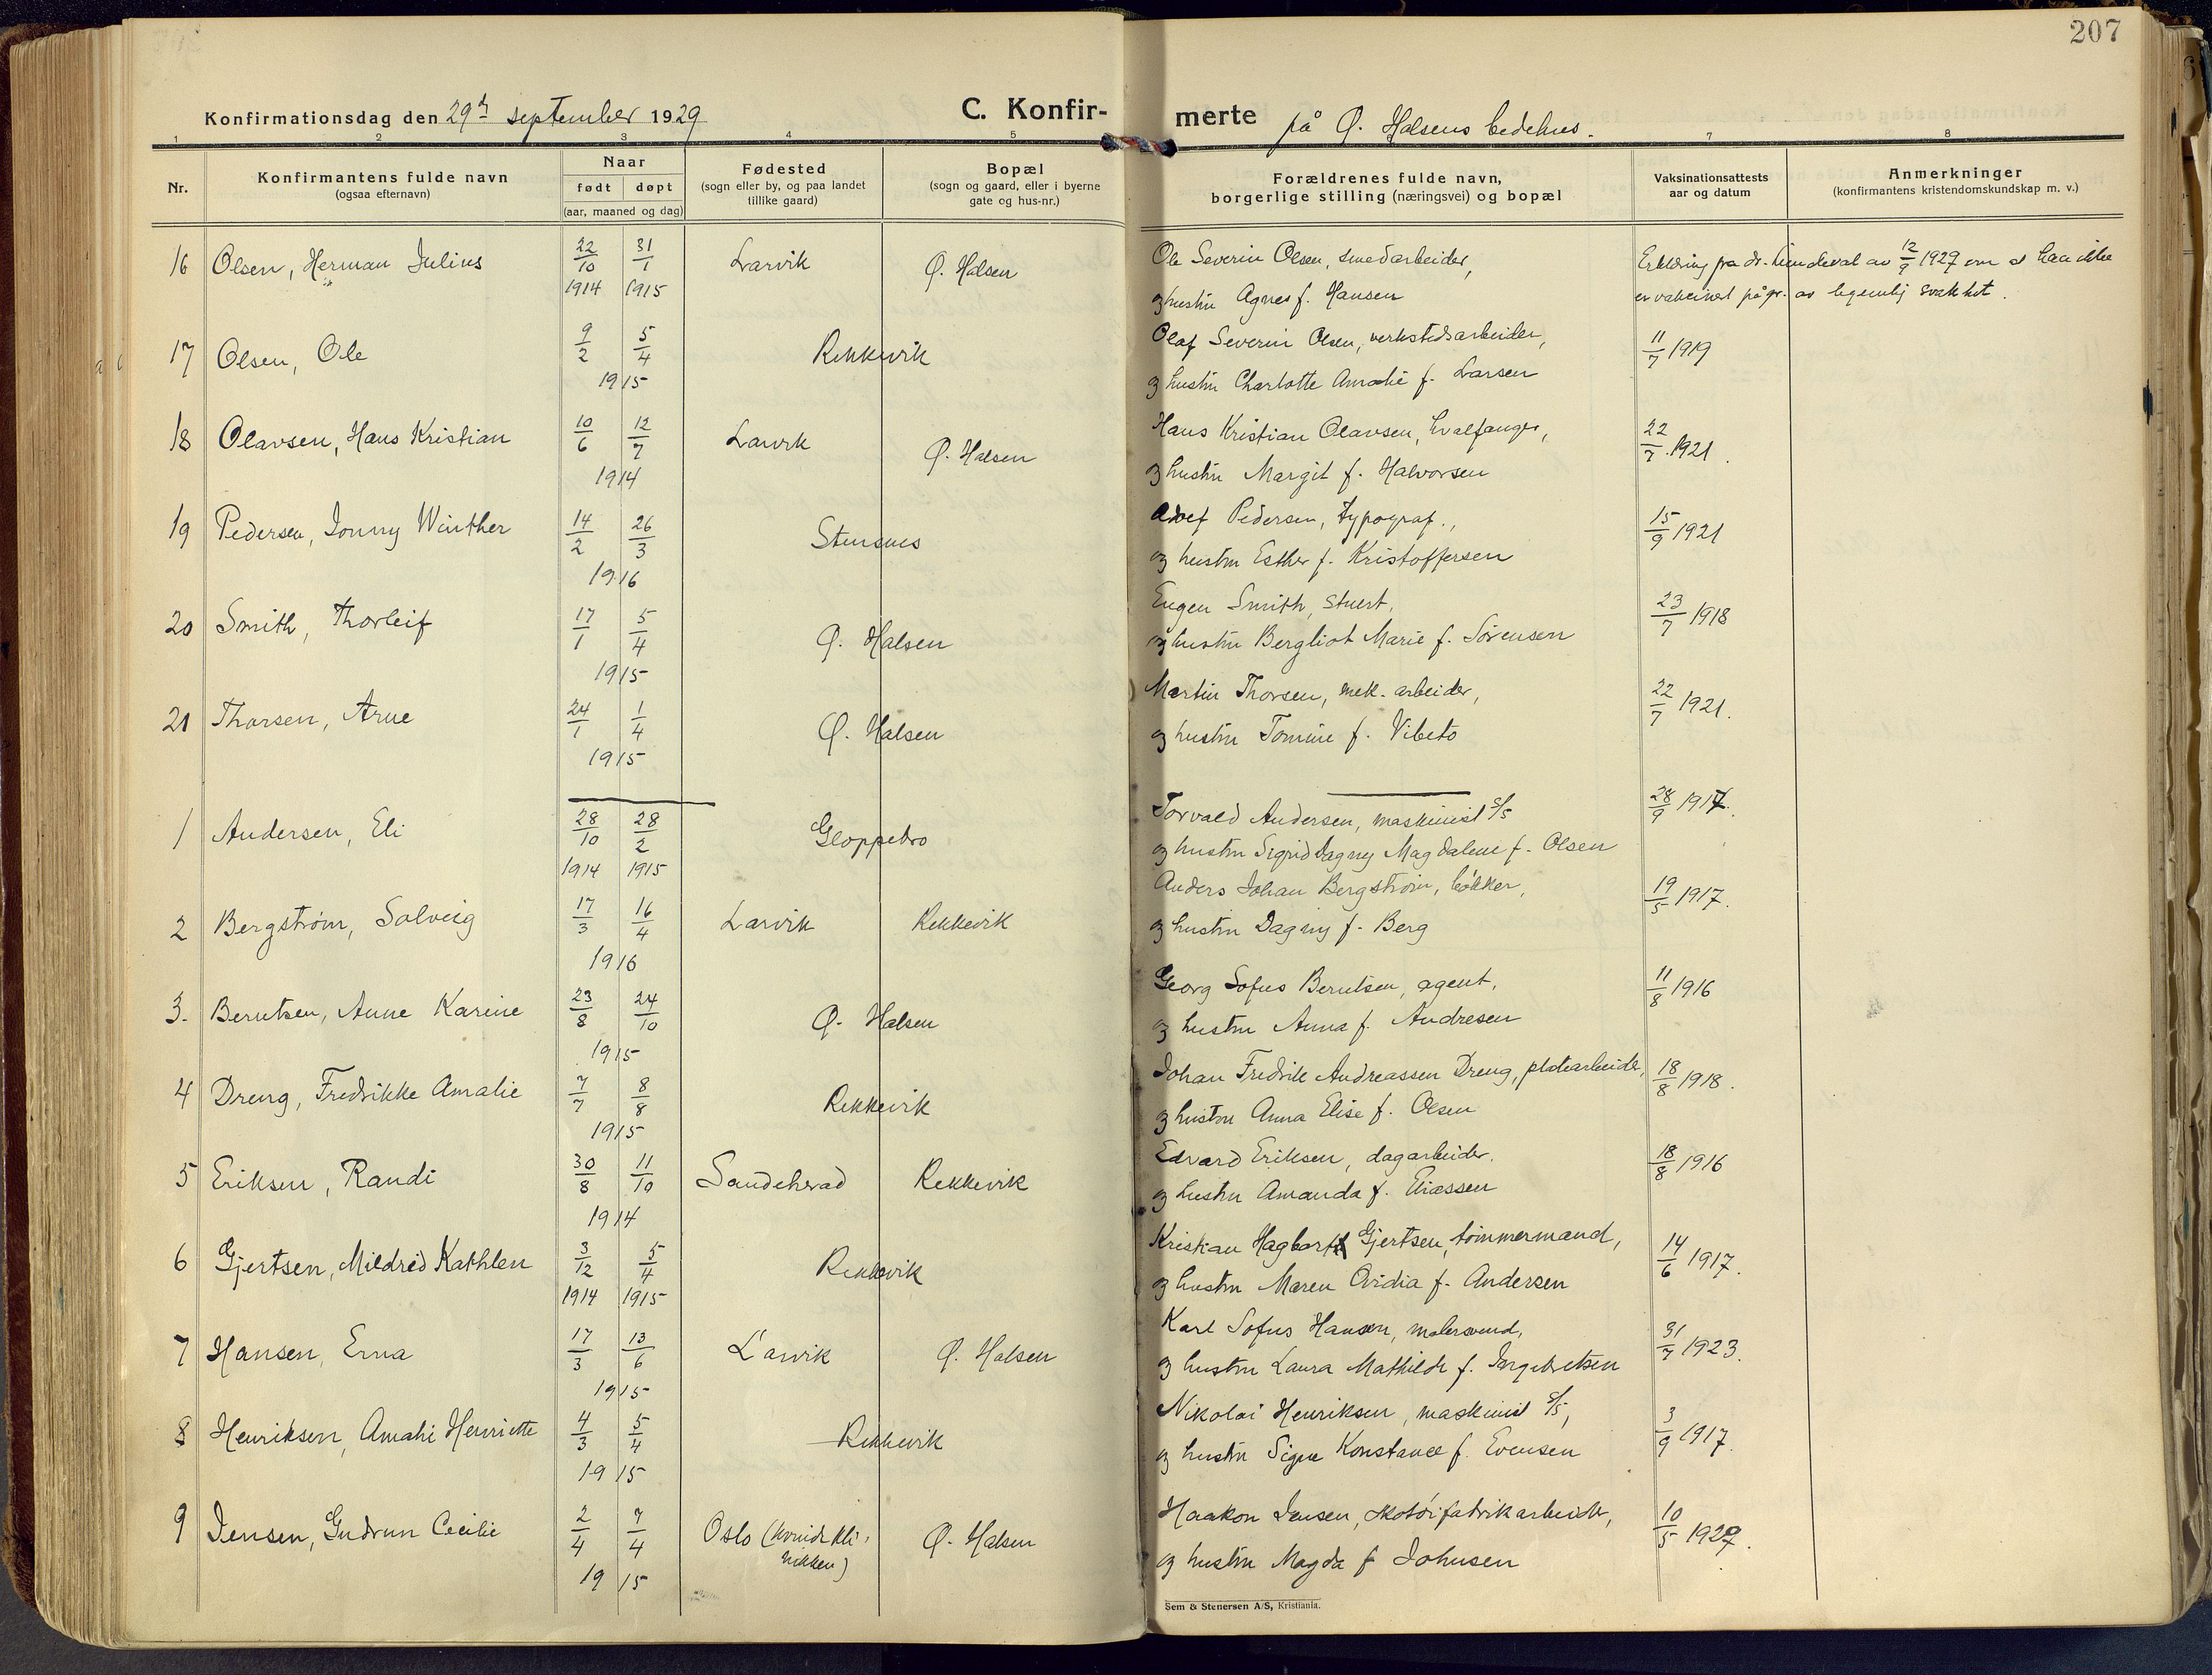 207
Konfirmationsdag den 29de september 1929
C. Konfirmerte på Ø. Halsens bedehus.
1 2 3 4 5 7 8
Nr.
Konfirmantens fulde navn
(ogsaa efternavn)
Naar
født døpt
(aar, maaned og dag)
Fødested
(sogn eller by, og paa landet
tillike gaard)
Bopæl
(sogn og gaard, eller i byerne
gate og hus-nr.)
Forældrenes fulde navn,
borgerlige stilling (næringsvei) og bopæl
Vaksinationsattests
aar og datum
Anmerkninger
(konfirmantens kristendomskundskap m. v.)
16 Olsen, Herman Julius 22/10 1914 31/1 1915 Larvik Ø. Halsen
Ole Severin Olsen, smedarbeider,
og hustru Agnes f. Hansen
Erklæring fra dr. av 12/9 1927 om at han ikke
er vaksinert på gr. av legemlig svakhet.
17 Olsen, Ole 9/2 5/4 1915 Rekkevik
Olaf Severin Olsen, verkstedsarbeider,
og hustru Charlotte Amalie f. Larsen
11/7 1919
18 Olavsen, Hans Kristian 10/6 12/7 1914 Larvik Ø. Halsen
Hans Kristian Olavsen, hvalfanger,
og hustru Margit f. Halvorsen
22/7 1921.
19 Pedersen, Jonny Winther 14/2 26/3 1916 Stensnes
Adolf Pedersen, typograf.,
og hustru Esther f. Kristoffersen
15/9 1921
20 Smith, Thorleif 17/1 5/4 1915 Ø. Halsen
Eugen Smith, stuert,
og hustru Bergliot Marie f. Sørensen
23/7 1918
21 Thorsen, Arne 24/1 1/4 1915 Ø. Halsen
Martin Thorsen, mek. arbeider,
og hustru Tomine f. Vibeto
22/7 1921.
1 Andersen, Eli 28/10 1914 28/2 1915 Gloppebro
Torvald Andersen, maskinist s/s
og hustru Sigrid Dagny Magdalene f. Olsen
28/9 1917.
2 Bergstrøm, Solveig 17/3 16/4 1916 Larvik Rekkevik
Anders Johan Bergstrøm, bøkker,
og hustru Dagny f. Berg
19/5 1917.
3. Berntsen, Anne Karine 23/8 24/10 1915 Ø. Halsen
Georg Sofus Berntsen, agent,
og hustru Anna f. Andresen
11/8 1916
4 Dreng, Fredrikke Amalie 7/7 8/8 1915 Rekkevik
Johan Fredrik Andreassen Dreng, platearbeider,
og hustru Anna Elise f. Olsen
18/8 1918.
5 Eriksen, Randi 30/8 11/10 1914 Sandeherad Rekkevik
Edvard Eriksen, dagarbeider.
og hustru Amanda f. Eliassen
18/8 1916
6 Gjertsen, Mildred Kathlen 3/12 1914 5/4 1915 Rekkevik
Kristian Hagbart Gjertsen, tømmermand,
og hustru Maren Ovidia f. Andersen
14/6 1917.
7 Hansen, Erna 17/3 13/6 1915 Larvik Ø. Halsen
Karl Sofus Hansen, malersvend,
og hustru Laura Mathilde f. Ingebretsen
31/7 1923.
8 Henriksen, Amalie Henriette 4/3 5/4 1915 Rekkevik
Nikolai Henriksen, maskinist s/s,
og hustru Signe Konstance f. Evensen
3/9 1917.
9 Jensen, Gudrun Cecilie 2/4 7/4 1915 Oslo (kvindekli-
nikken) Ø. Halsen
Haakon Jensen, skotøifabrikarbeider,
og hustru Magda f Johnsen
10/5 1929.
Sem & Stenersen A/S, Kristiania.